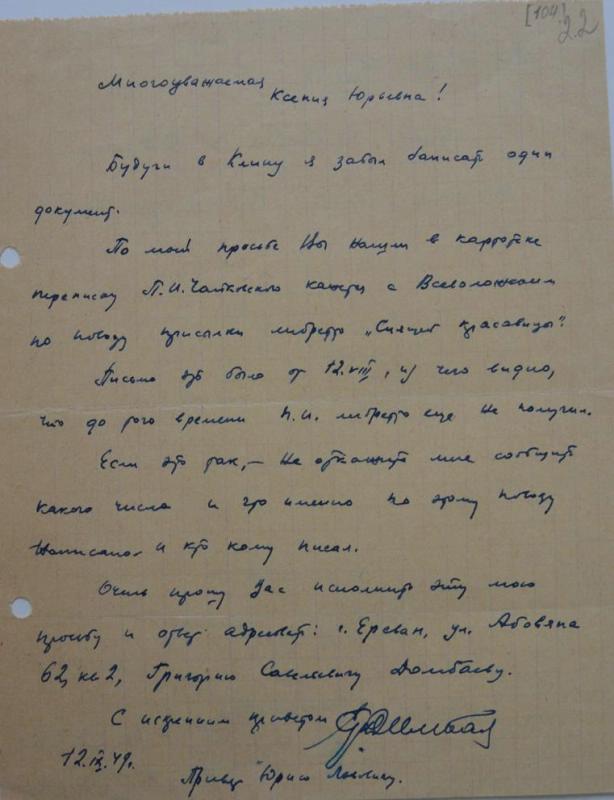 [104]
22
Многоуважаемая
Ксения Юрьевна!
Будучи в Клину я забыл записать один
документ.
По моей просьбе Вы нашли в картотеке
переписку П.И. Чайковского кажется с Всеволожским
по поводу присылки либретто „Спящей красавицы".
Письмо это было от 12.VIII, из чего видно,
что до того времени П.И. либретто еще не получил.
Если это так, – не откажите мне сообщить
какого числа и что именно по этому поводу
написано и кто кому писал.
Очень прошу Вас исполнить эту мою
просьбу и ответ адресовать: г. Ереван, ул. Абовяна
62, кв 2, Григорию Савельевичу Домбаеву.
С искренним приветом
12.IX.49г.
Привет Юрию Львовичу.